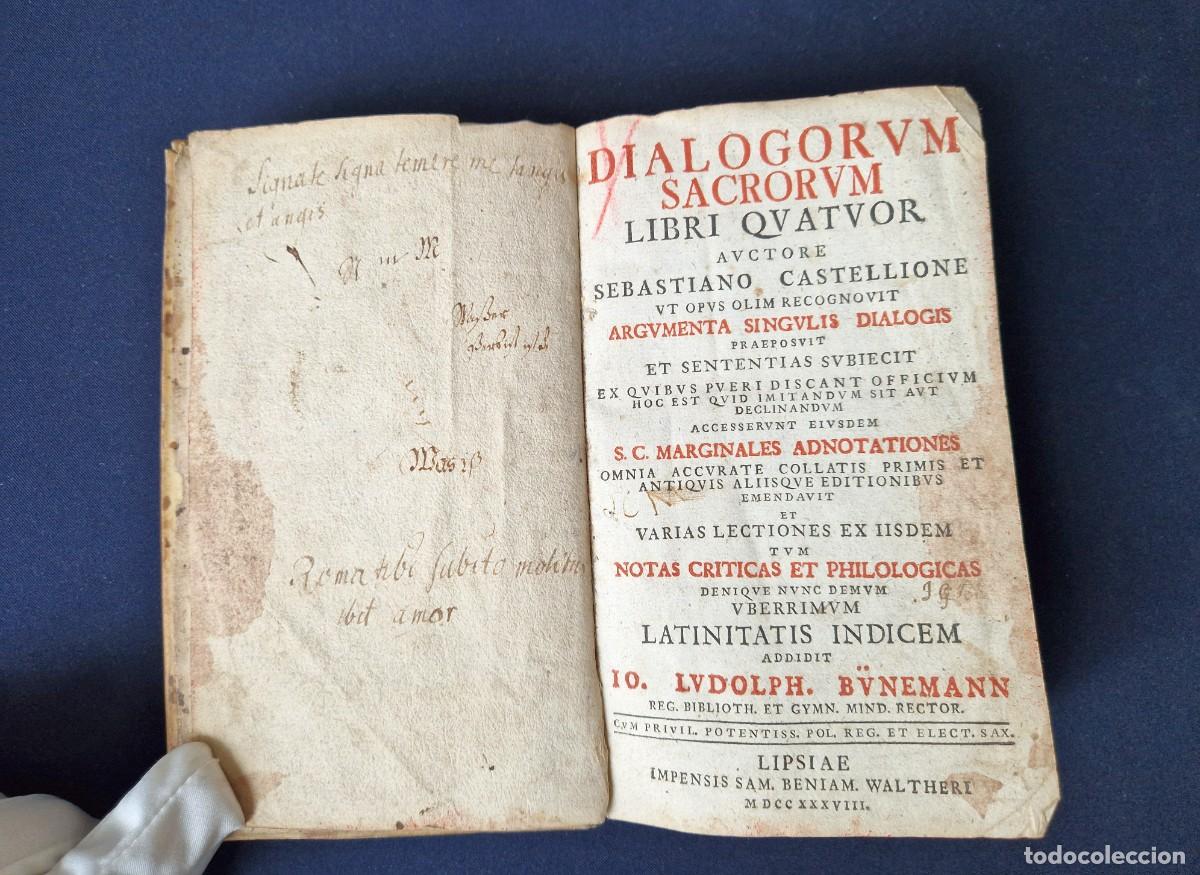 Signate signa temere me tangis
et angis
N m M
Wasser
Masiß
Roma tibi subito motibus
ibit amor
DIALOGORVM
SACRORVM
LIBRI QVATVOR
AVCTORE
SEBASTIANO CASTELLIONE
VT OPVS OLIM RECOGNOVIT
ARGVMENTA SINGVLIS DIALOGIS
PRAEPOSVIT
ET SENTENTIAS SVBIECIT
EX QVIBVS PVERI DISCANT OFFICIVM
HOC EST QVID IMITANDVM SIT AVT
DECLINANDVM
ACCESSERVNT EIVSDEM
S. C. MARGINALES ADNOTATIONES
OMNIA ACCVRATE COLLATIS PRIMIS ET
ANTIQVIS ALIISQVE EDITIONIBVS
EMENDAVIT
ET
VARIAS LECTIONES EX IISDEM
TVM
NOTAS CRITICAS ET PHILOLOGICAS
DENIQVE NVNC DEMVM
VBERRIMVM
LATINITATIS INDICEM
ADDIDIT
IO. LVDOLPH. BÜNEMANN
REG. BIBLIOTH. ET GYMN. MIND. RECTOR.
CVM PRIVIL. POTENTISS. POL. REG. ET ELECT. SAX.
LIPSIAE
IMPENSIS SAM. BENIAM. WALTHERI
MDCCXXXVIII.
todocoleccion